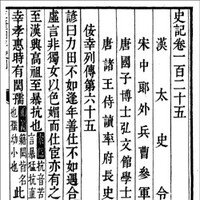 史記卷一百二十五
漢太史令
宋中郎外兵曹參軍
唐國子博士弘文館學士
唐諸王侍讀率府長史
佞幸列傳第六十五
諺曰力田不如逢年善仕不如遇合
虛言非獨女以色媚而仕宦亦有之
至漢興高祖至暴抗也抗音苦言暴猛抗直
幸孝惠時有閎孺籍閎皆名也孺幼小也此